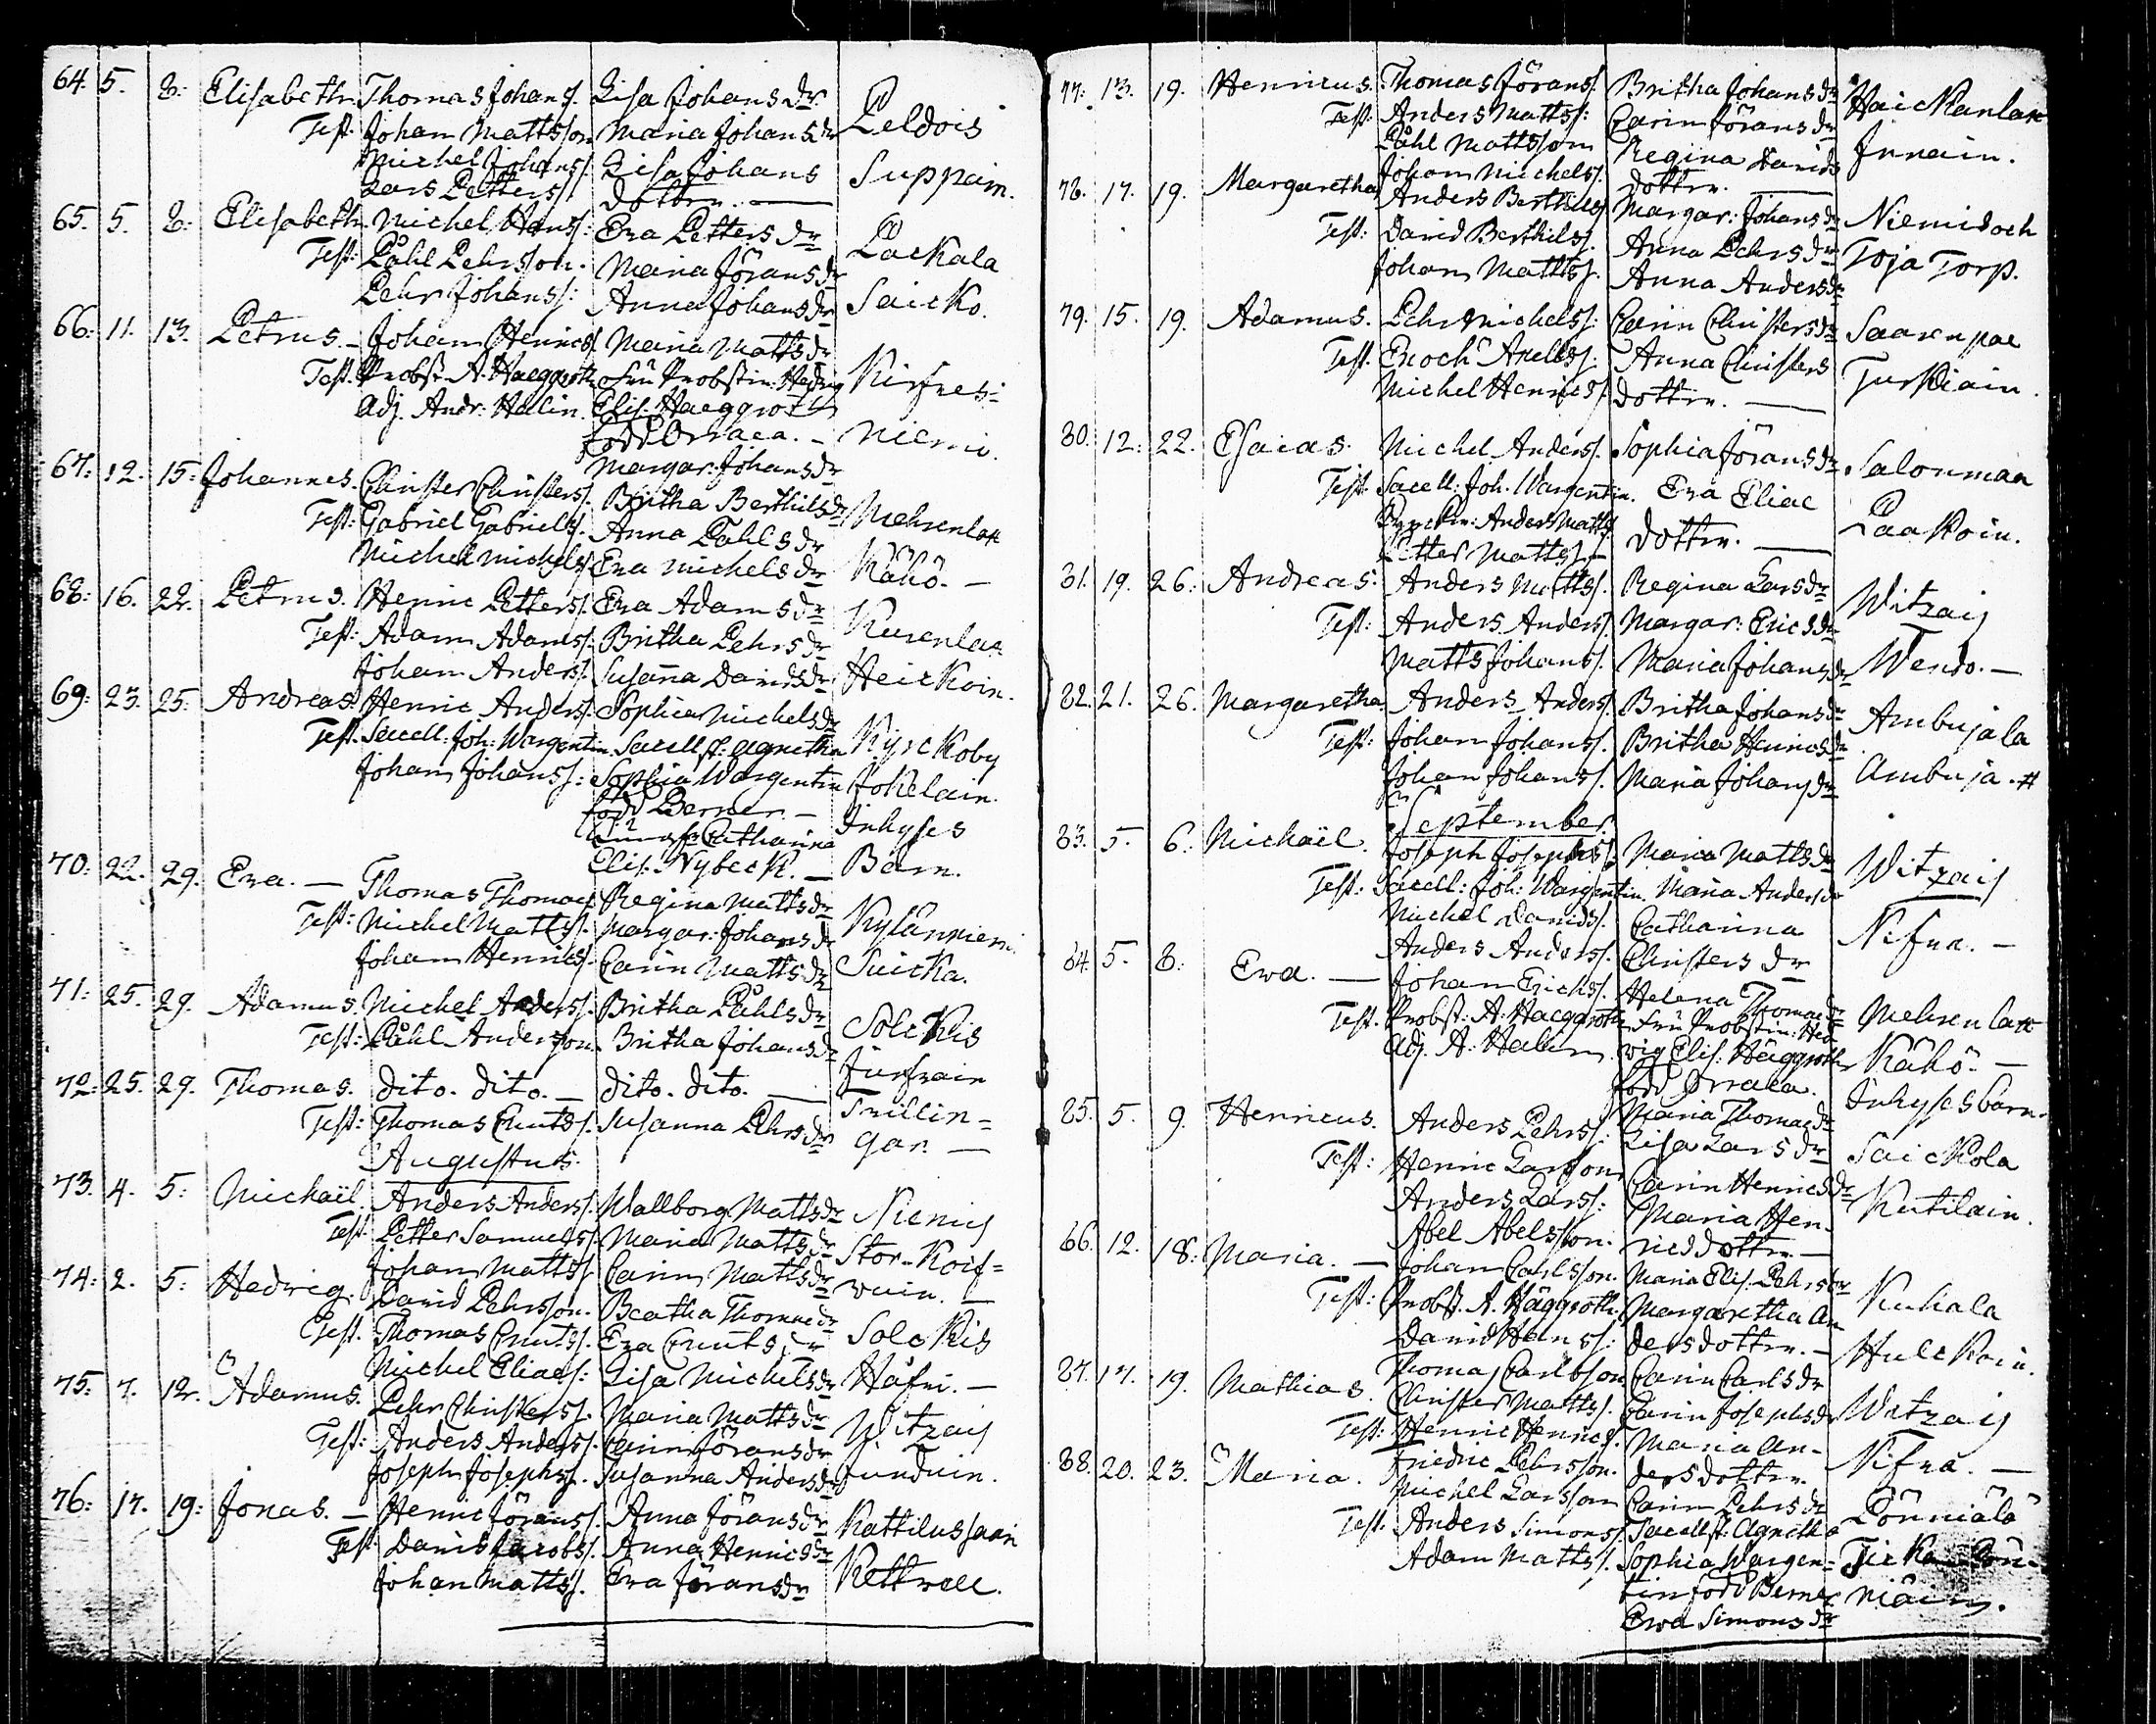 64. 5. 8. Elisabeth. Thomas Johans/. Lisa Johansdr Peldois
Test. Johan Mattsson Maria Johansdr
Michel Johans/. Lisa Johans Suppain.
Lars Petters/. dotter. —
65. 5. 8. Elisabeth Michel Hans/: Eva Pettersdr Packala
Test: Påhl Pehrsson. Maria Jöransdr
Pehr Johans/: Anna Johansdr Saicko.
66. 11. 13. Petrus. — Johan Henrics/. Maria Mattsdr Kirfves=
Test. Probst. A. Haeggroth Fru Probstin. Hedvig
Adj. Andr: Halin. Elis: Haeggroth
född Orraea. — niemi.
67. 12. 15. Johannes. Christer Christers/. Margar: Johansdr
Test: Gabriel Gabriels/. Britha Berthilsdr Mehrenlax
Michel Michels/. Anna Påhlsdr
Eva Michelsdr Kähö. —
68: 16. 22. Petrus. Henric Petters/. Eva Adamsdr
Test: Adam Adams/. Britha Pehrsdr Kurenlax
Johan Anders/. Susanna Davidsdr Heickoin.
69: 23. 25. Andreas. Henric Anders/. Sophia Michelsdr
Test. Sacell: Joh: Wargentin. Sacell sk: Agnetha Kyrckoby
Johan Johans/: Sophia Wargentin Jokelain.
född Berner. —
Catharina Inhyses
Elis: Nybeck. — Barn.
70: 22. 29. Eva. — Thomas Thomas/. Regina Mattsdr
Test: Michel Matts/. Margar: Johansdr Kylänniemi
Johan Henrics/. Carin Mattsdr Suicka.
71: 25. 29. Adamus. Michel Anders/. Britha Påhlsdr
Test: Påhl Andersson. Britha Johansdr Solckis
72: 25. 29. Thomas. dito. dito. — dito. dito. —
Test: Thomas Cnuts/. Susanna Pehrsdr Tvillin=
Augustus. gar. —
73. 4. 5: Michaël. Anders Anders/. Wallborg Mattsdr Niemis
Test. Petter Samuels/. Maria Mattsdr Stor-Koif=
Johan Matts/. Carin Mattsdr vuin. —
74: 2. 5: Hedvig. David Pehrsson. Beatha Thomaedr
Test. Thomas Cnuts/. Eva Cnutsdr Solckis
Michel Elias/: Lisa Michelsdr Häfri. —
75: 7. 12. Adamus. Pehr Christers/. Maria Mattsdr Witzais
Test: Anders Anders/. Carin Jöransdr
Joseph Josephs/. Susanna Andersdr Junduin.
76: 17. 19: Jonas. — Henric Jörans/. Anna Jöransdr Kattilussaari
Test. David Jacobs/. Anna Henricsdr
Johan Matts/. Eva Jöransdr Kettwell.
77: 13. 19. Henricus. Thomas Jörans/. Britha Johansdr Haickanlax
Test: Anders Matts/: Carin Jöransdr
Påhl Mattsson Regina Davids
Johan Michels/. dotter. —
78. 17. 19. Margaretha Anders Berthils/. Margar: Johansdr Niemis och
Test: David Berthils/. Anna Pehrsdr Toja Torp.
Johan Matts/. Anna Andersdr
79. 15. 19. Adamus. Pehr Michels/: Carin Christersdr Saarenpae
Test: Enoch Axels/. Anna Christers Turckiain.
Michel Henrics/. dotter. —
80. 12: 22. Esaias. Michel Anders/. Sophia Jöransdr Salonmaa
Test: Sacell: Joh. Wargentin. Eva Eliae
Anders Matts/. dotter. — Paakoin.
Petter Matts/. —
81. 19. 26. Andreas. Anders Matts/. Regina Larsdr Witzais
Test: Anders Anders/. Margar: Ericsdr
Matts Johans/. Maria Johansdr
82. 21. 26. Margaretha Anders Anders/. Britha Johansdr Ambujala
Test: Johan Johans/. Britha Henricsdr
Johan Johans/. Maria Johansdr Ambuja. #
September.
83. 5. 6. Michaël. Joseph Josephs/. Maria Mattsdr Witzais
Test: Sacell: Joh: Wargentin. Maria Andersdr
Michel Davids/. Catharina
Anders Anders/. Christersdr
84. 5. 8: Ewa. — Johan Erichs/. Helena Thomaedr Mehrenlax
Test. Probst: A. Haeggroth Fru Probstin: Hed
Adj. A: Halin. vig Elis: Häggroth Kähö. —
född Orraea. Inhyses barn.
85. 5. 9. Henricus. Anders Pehrs/: Maria Thomaedr
Lisa Larsdr Saickola
Test: Henric Larsson Carin Henricsdr
Anders Lars/: Maria Hen- Kutilain.
Abel Abelsson. ricsdotter. —
86. 12. 18: Maria. — Johan Carlsson. Maria Elis. Pehrsdr Kukala
Test: Probst. A. Häggroth. Margaretha An
David Hans/: dersdotter. — Hulckoin.
Thomas Carlsson Carin Carlsdr
87. 17. 19. Mathias. Christer Matts/. Carin Josephsdr Witzais
Test: Henric Henrics/. Maria An-
Friedric Pehrsson. dersdotter.
88. 20. 23. Maria. Michel Larsson Carin Pehrsdr Pönniälä
Test: Anders Simons/. Sacell sk: Agnetha
Adam Matts/. Sophia Wargen=
tin född Berner niäin.
Ewa Simonsdr